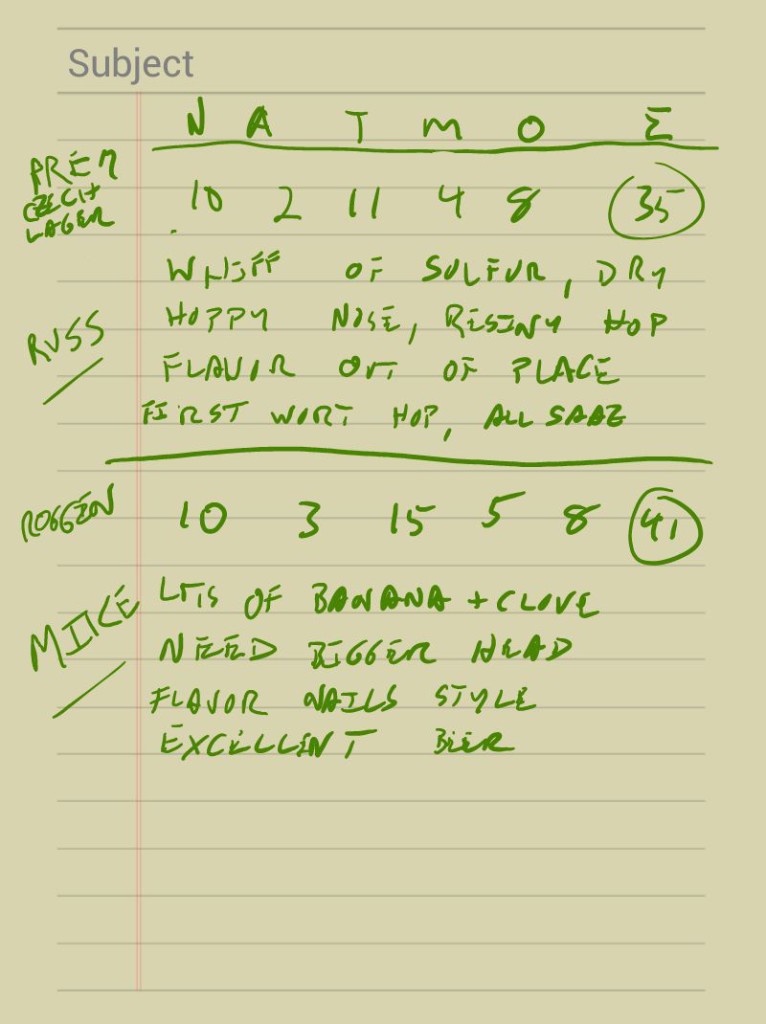 Subject
N A T M O Σ
PREM CZECH LAGER
10 2 11 4 8 35
RUSS
WHIFF OF SULFUR, DRY
HOPPY NOSE, RESINY HOP
FLAVOR OUT OF PLACE
FIRST WORT HOP, ALL SAAZ
ROGGEN
10 3 15 5 8 41
MIKE
LOTS OF BANANA + CLOVE
NEED BIGGER HEAD
FLAVOR NAILS STYLE
EXCELLENT BIER